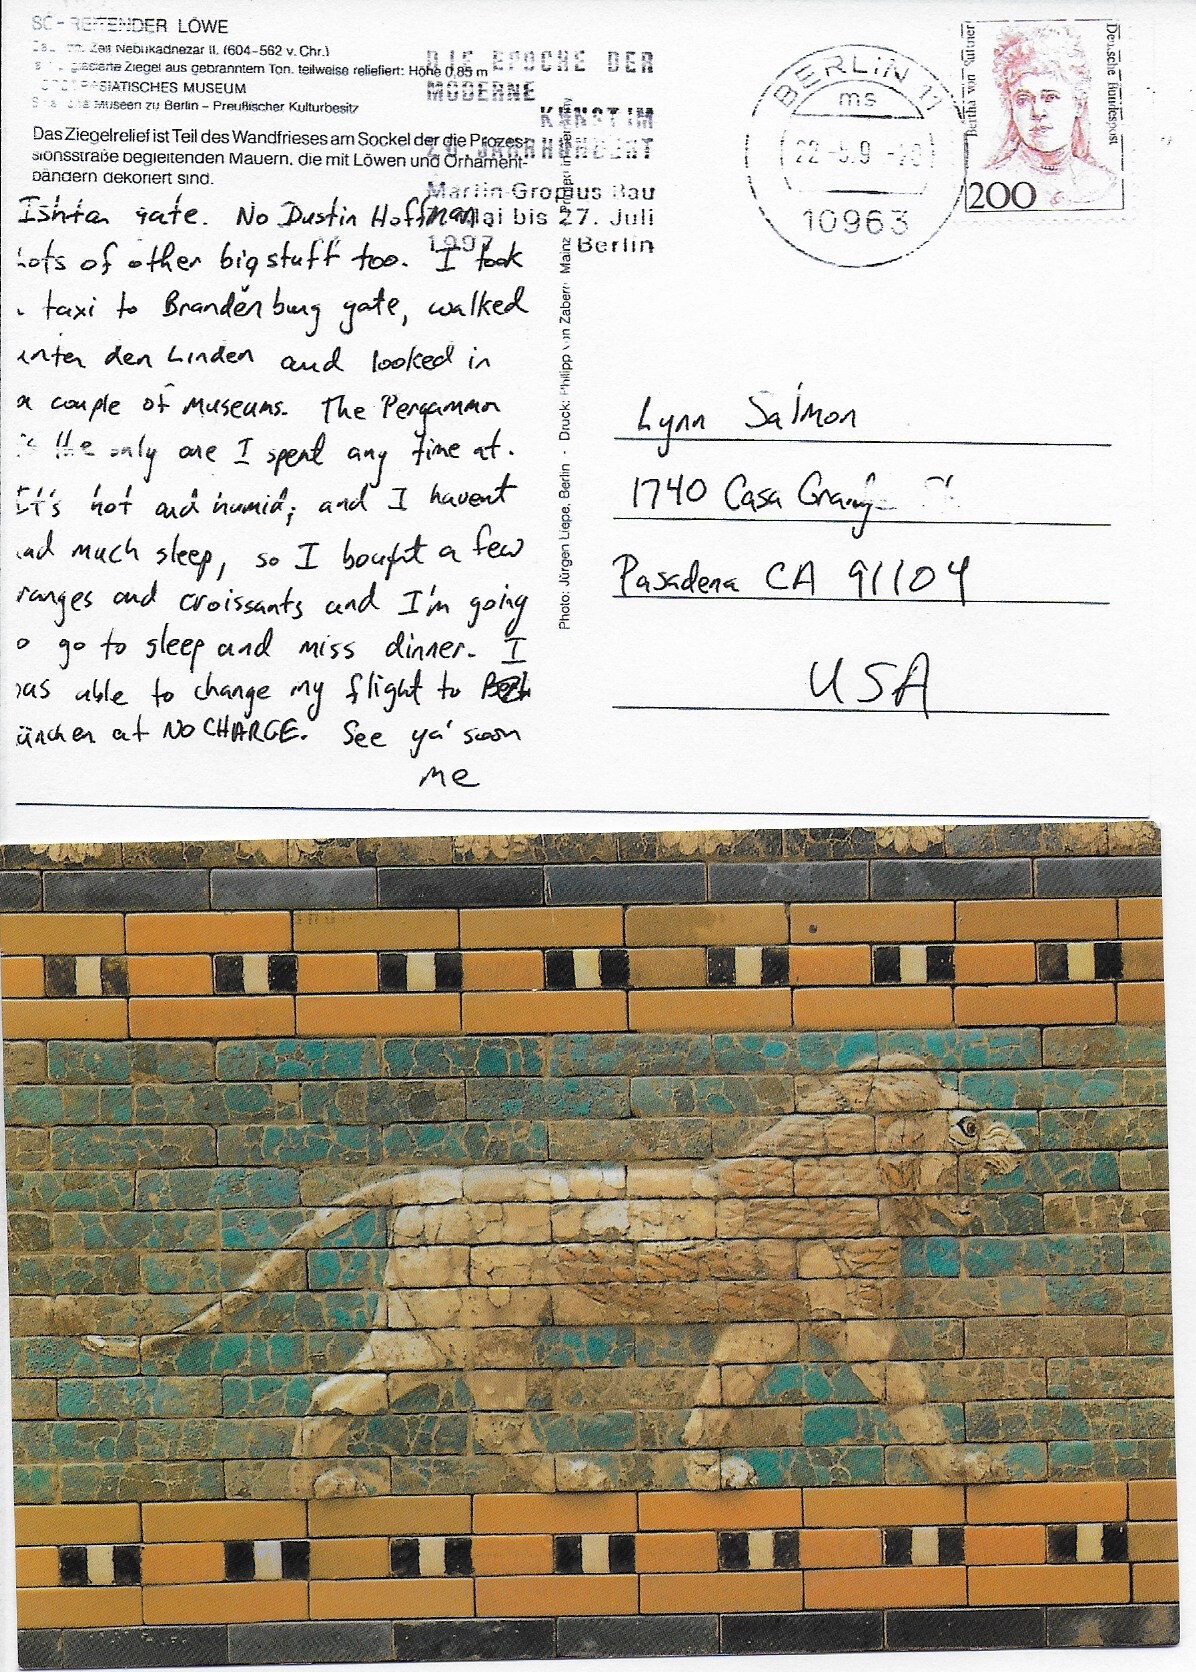 SCHREITENDER LÖWE
Zeit Nebukadnezar II. (604–562 v. Chr.)
glasierte Ziegel aus gebranntem Ton, teilweise reliefiert: Höhe 0,85 m
ASIATISCHES MUSEUM
Museen zu Berlin – Preußischer Kulturbesitz
Das Ziegelrelief ist Teil des Wandfrieses am Sockel der die Prozes-
sionsstraße begleitenden Mauern, die mit Löwen und Ornament-
bändern dekoriert sind.
DIE EPOCHE DER
MODERNE
KUNST IM
20. JAHRHUNDERT
Martin Gropius Bau
7. Mai bis 27. Juli
1997 Berlin
BERLIN 11
ms
10963
Bertha von Suttner
Deutsche Bundespost
200
Ishtar gate. No Dustin Hoffman.
Lots of other big stuff too. I took
taxi to Brandenburg gate, walked
unter den Linden and looked in
a couple of museums. The Pergammon
is the only one I spent any time at.
It's hot and humid; and I havent
had much sleep, so I bought a few
ranges and croissants and I'm going
o go to sleep and miss dinner. I
was able to change my flight to
ünchen at NO CHARGE. See ya' soon
me
Photo: Jürgen Liepe, Berlin · Druck: Philipp von Zabern Mainz
Lynn Salmon
1740 Casa
Pasadena CA 91104
USA